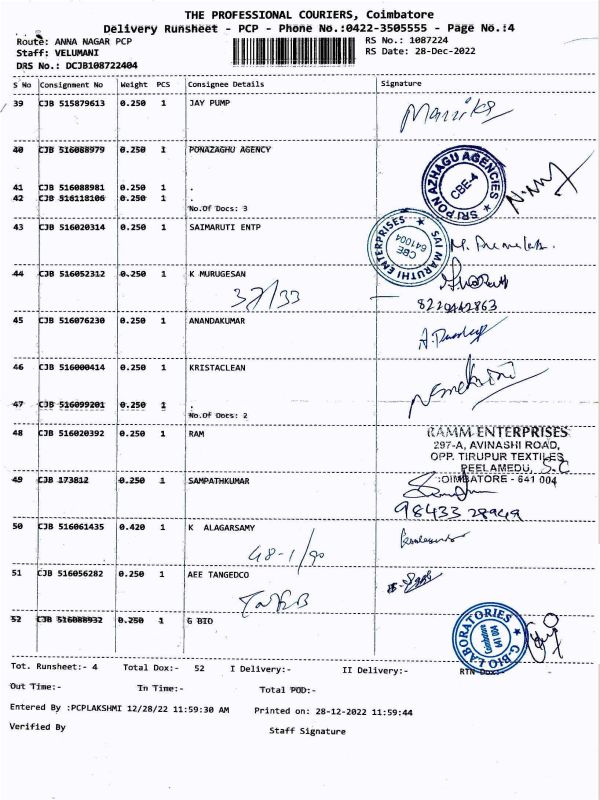 THE PROFESSIONAL COURIERS, Coimbatore
Delivery Runsheet - PCP - Phone No.:0422-3505555 - Page No.:4
Route: ANNA NAGAR PCP RS No.: 1087224
Staff: VELUMANI RS Date: 28-Dec-2022
DRS No.: DCJB108722404
S No Consignment No Weight PCS Consignee Details Signature
39 CJB 515879613 0.250 1 JAY PUMP
40 CJB 516088979 0.250 1 PONAZAGHU AGENCY
SRI PON AZHAGU AGENCIES CBE-4
41 CJB 516088981 0.250 1 .
42 CJB 516118106 0.250 1 .
No.Of Docs: 3
43 CJB 516020314 0.250 1 SAIMARUTI ENTP
SAI MARUTHI ENTERPRISES CBE 641004
44 CJB 516052312 0.250 1 K MURUGESAN
37/33
45 CJB 516076230 0.250 1 ANANDAKUMAR
46 CJB 516000414 0.250 1 KRISTACLEAN
47 CJB 516099201 0.250 1 .
No.Of Docs: 2
48 CJB 516020392 0.250 1 RAM
RAMM ENTERPRISES
297-A, AVINASHI ROAD,
OPP. TIRUPUR TEXTILES
PEELAMEDU,
COIMBATORE - 641 004
49 CJB 173812 0.250 1 SAMPATHKUMAR
50 CJB 516061435 0.420 1 K ALAGARSAMY
48-1/90
51 CJB 516056282 0.250 1 AEE TANGEDCO
52 CJB 516088932 0.250 1 G BIO
G-BIO LABORATORIES Coimbatore 641 004
Tot. Runsheet:- 4 Total Dox:- 52 I Delivery:- II Delivery:- RTN Dox:-
Out Time:- In Time:- Total POD:-
Entered By :PCPLAKSHMI 12/28/22 11:59:30 AM Printed on: 28-12-2022 11:59:44
Verified By Staff Signature